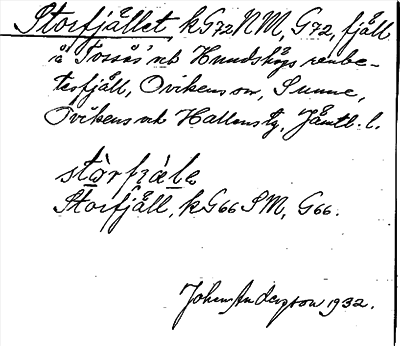 Storfjället kG72NM, G72, fjäll
å Tossås' och Hundshögs renbe-
tesfjäll, Ovikens sn, Sunne,
Ovikens och Hallens tg, Jämtl. l.
stòrfjæ̀lẹ
Storfjäll, kG66SM, G66.
Johan Anderzson 1932.